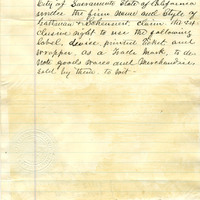 City of Sacramento State of California
under the firm name and Style of
claim the ex-
clusive right to use the following
label, device printed Ticket, and
wrapper, as a Trade Mark, to de-
note goods wares and Merchandise
sold by them, to wit-